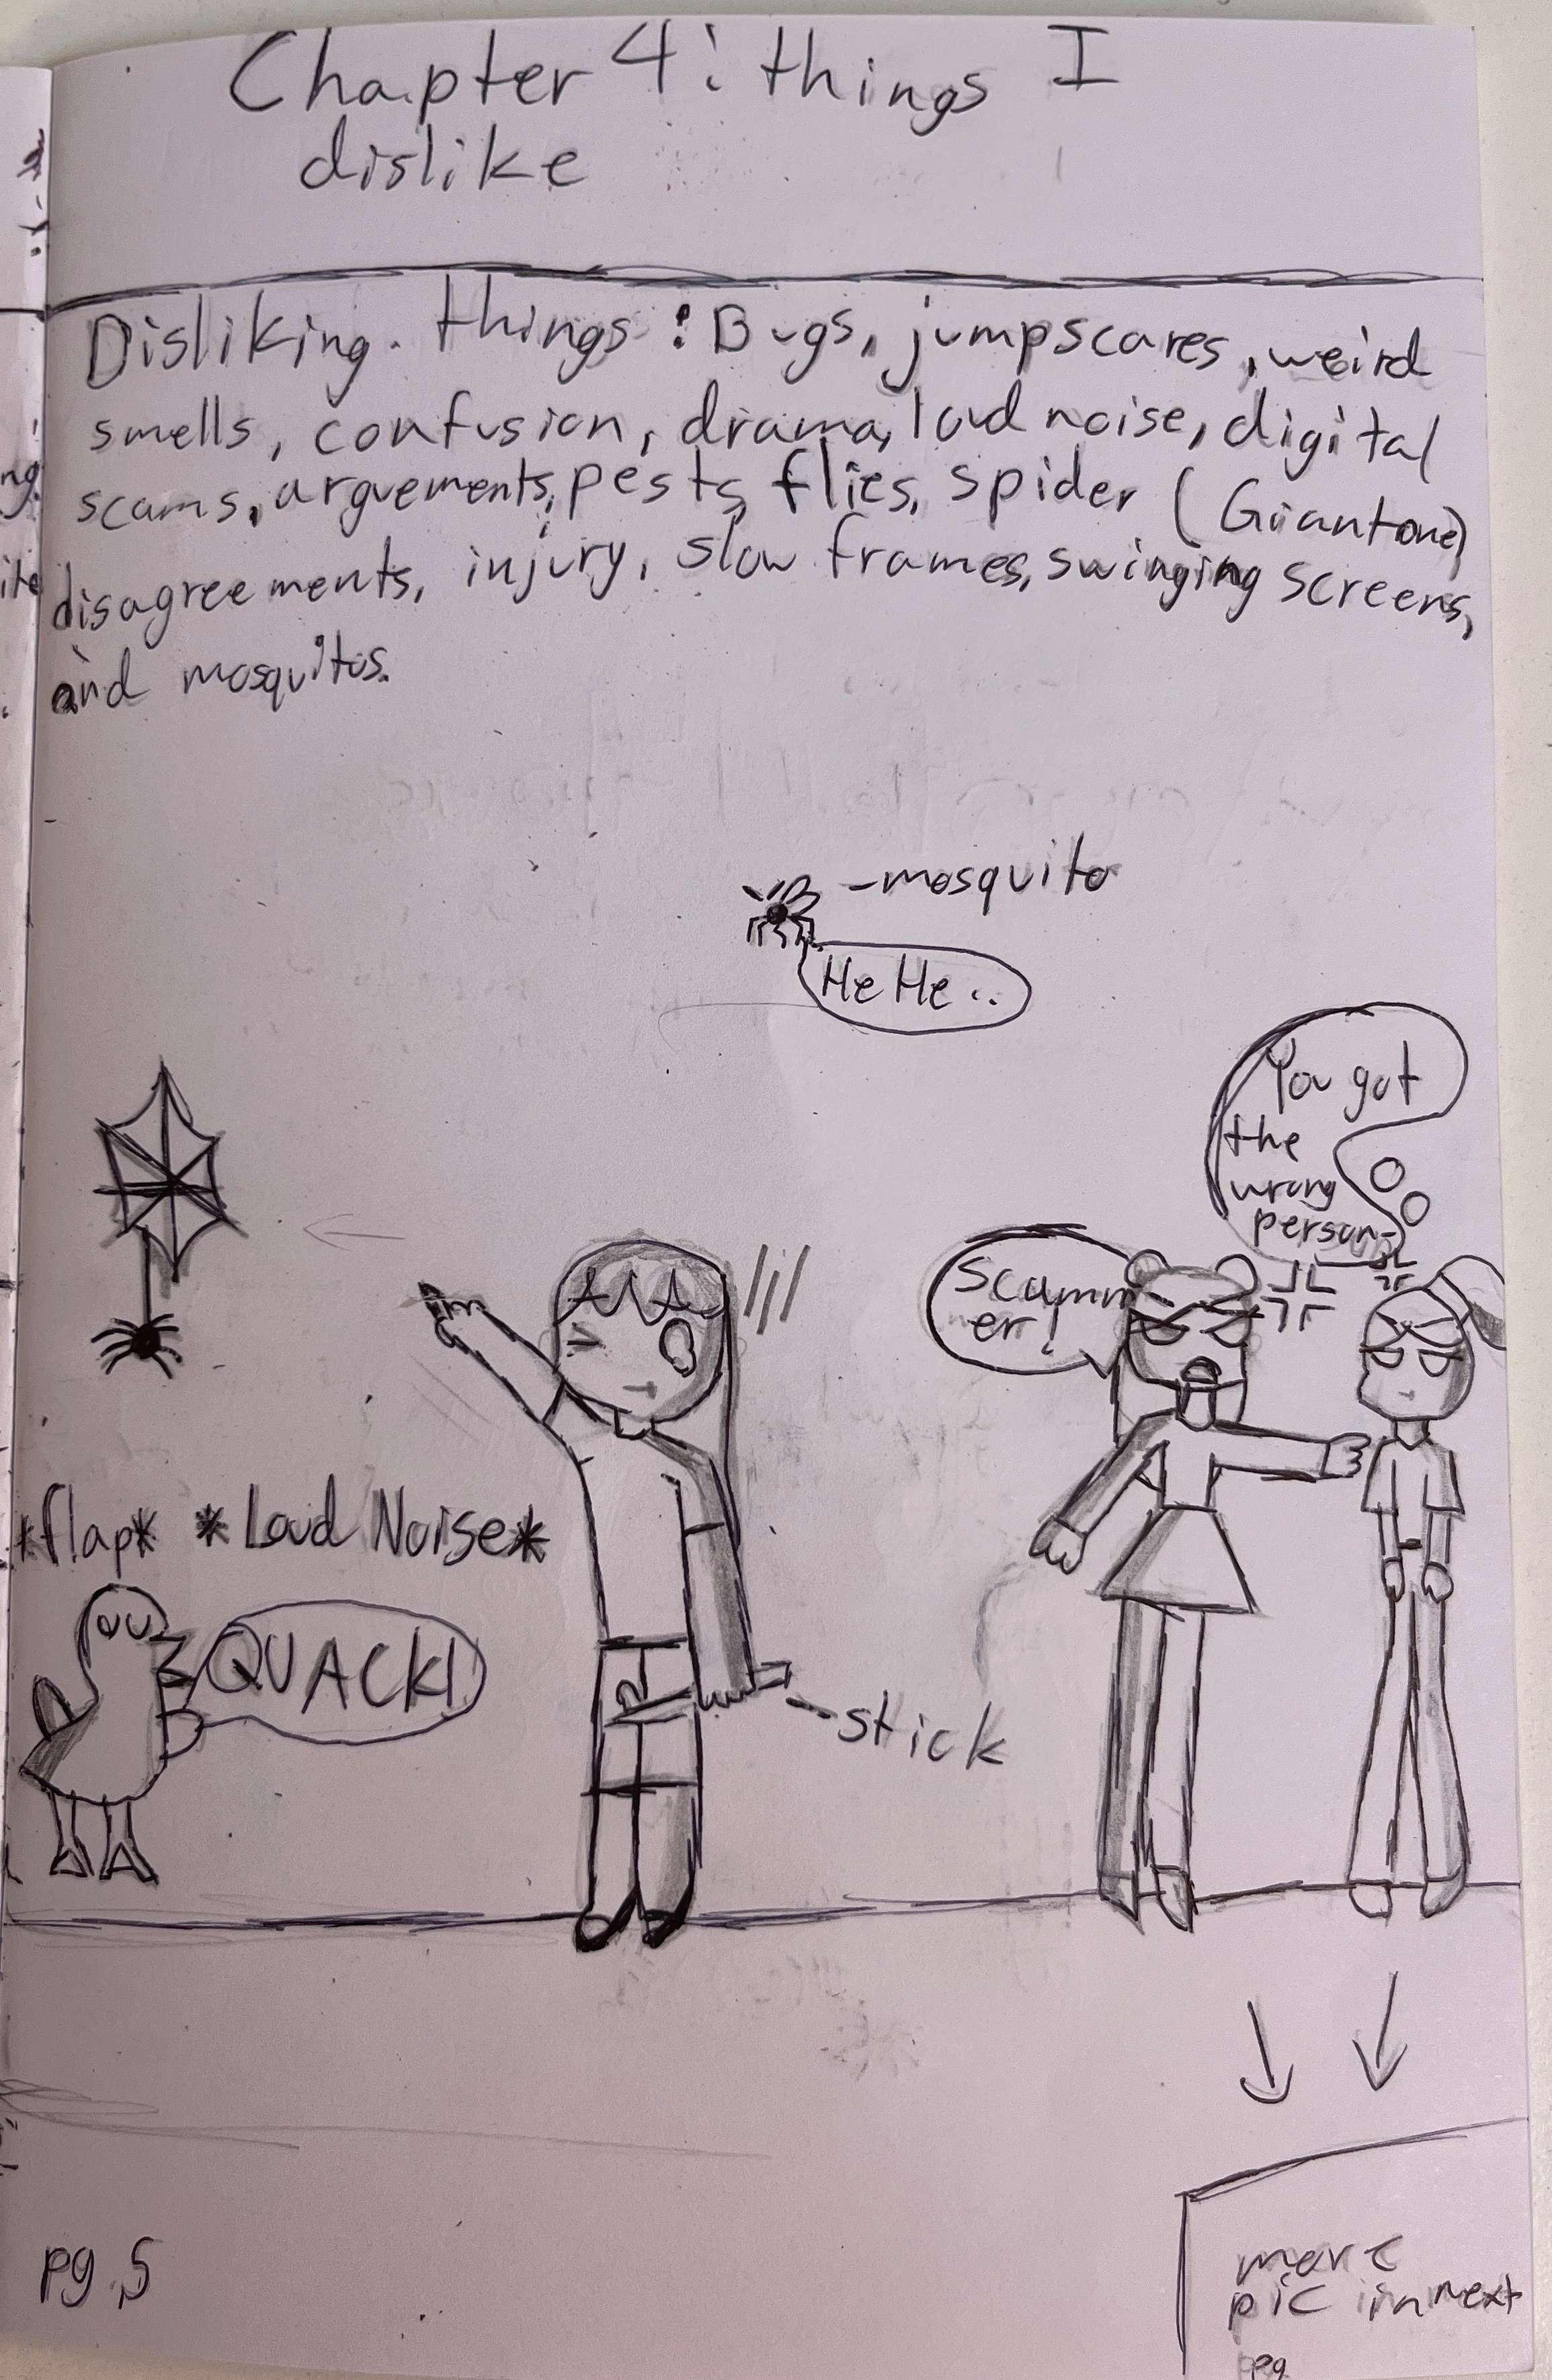 Chapter 4: things I
dislike
Disliking. things: Bugs, jumpscares, weird
smells, confusion, drama, loud noise, digital
scams, arguements, pests, flies, spider (Giant one)
disagreements, injury, slow frames, swinging screens,
and mosquitos.
-mosquito
HeHe..
You got
the
wrong
person-
Scamm
er!
*flap* *Loud Noise*
QUACK!
-stick
pg.5
more
pic in next
pg